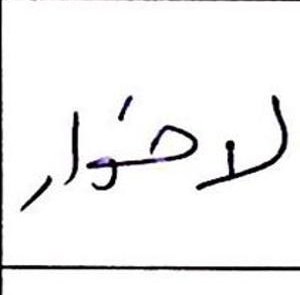 لا ضوار